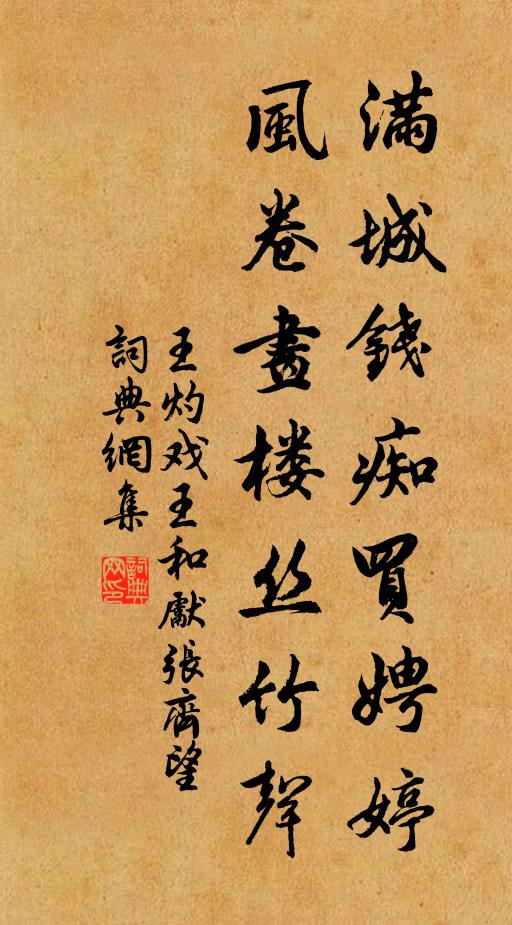 滿城錢痴買娉婷
風卷畫楼丝竹聲
王灼戏王和獻張齊望
詞典網集
詞典網印